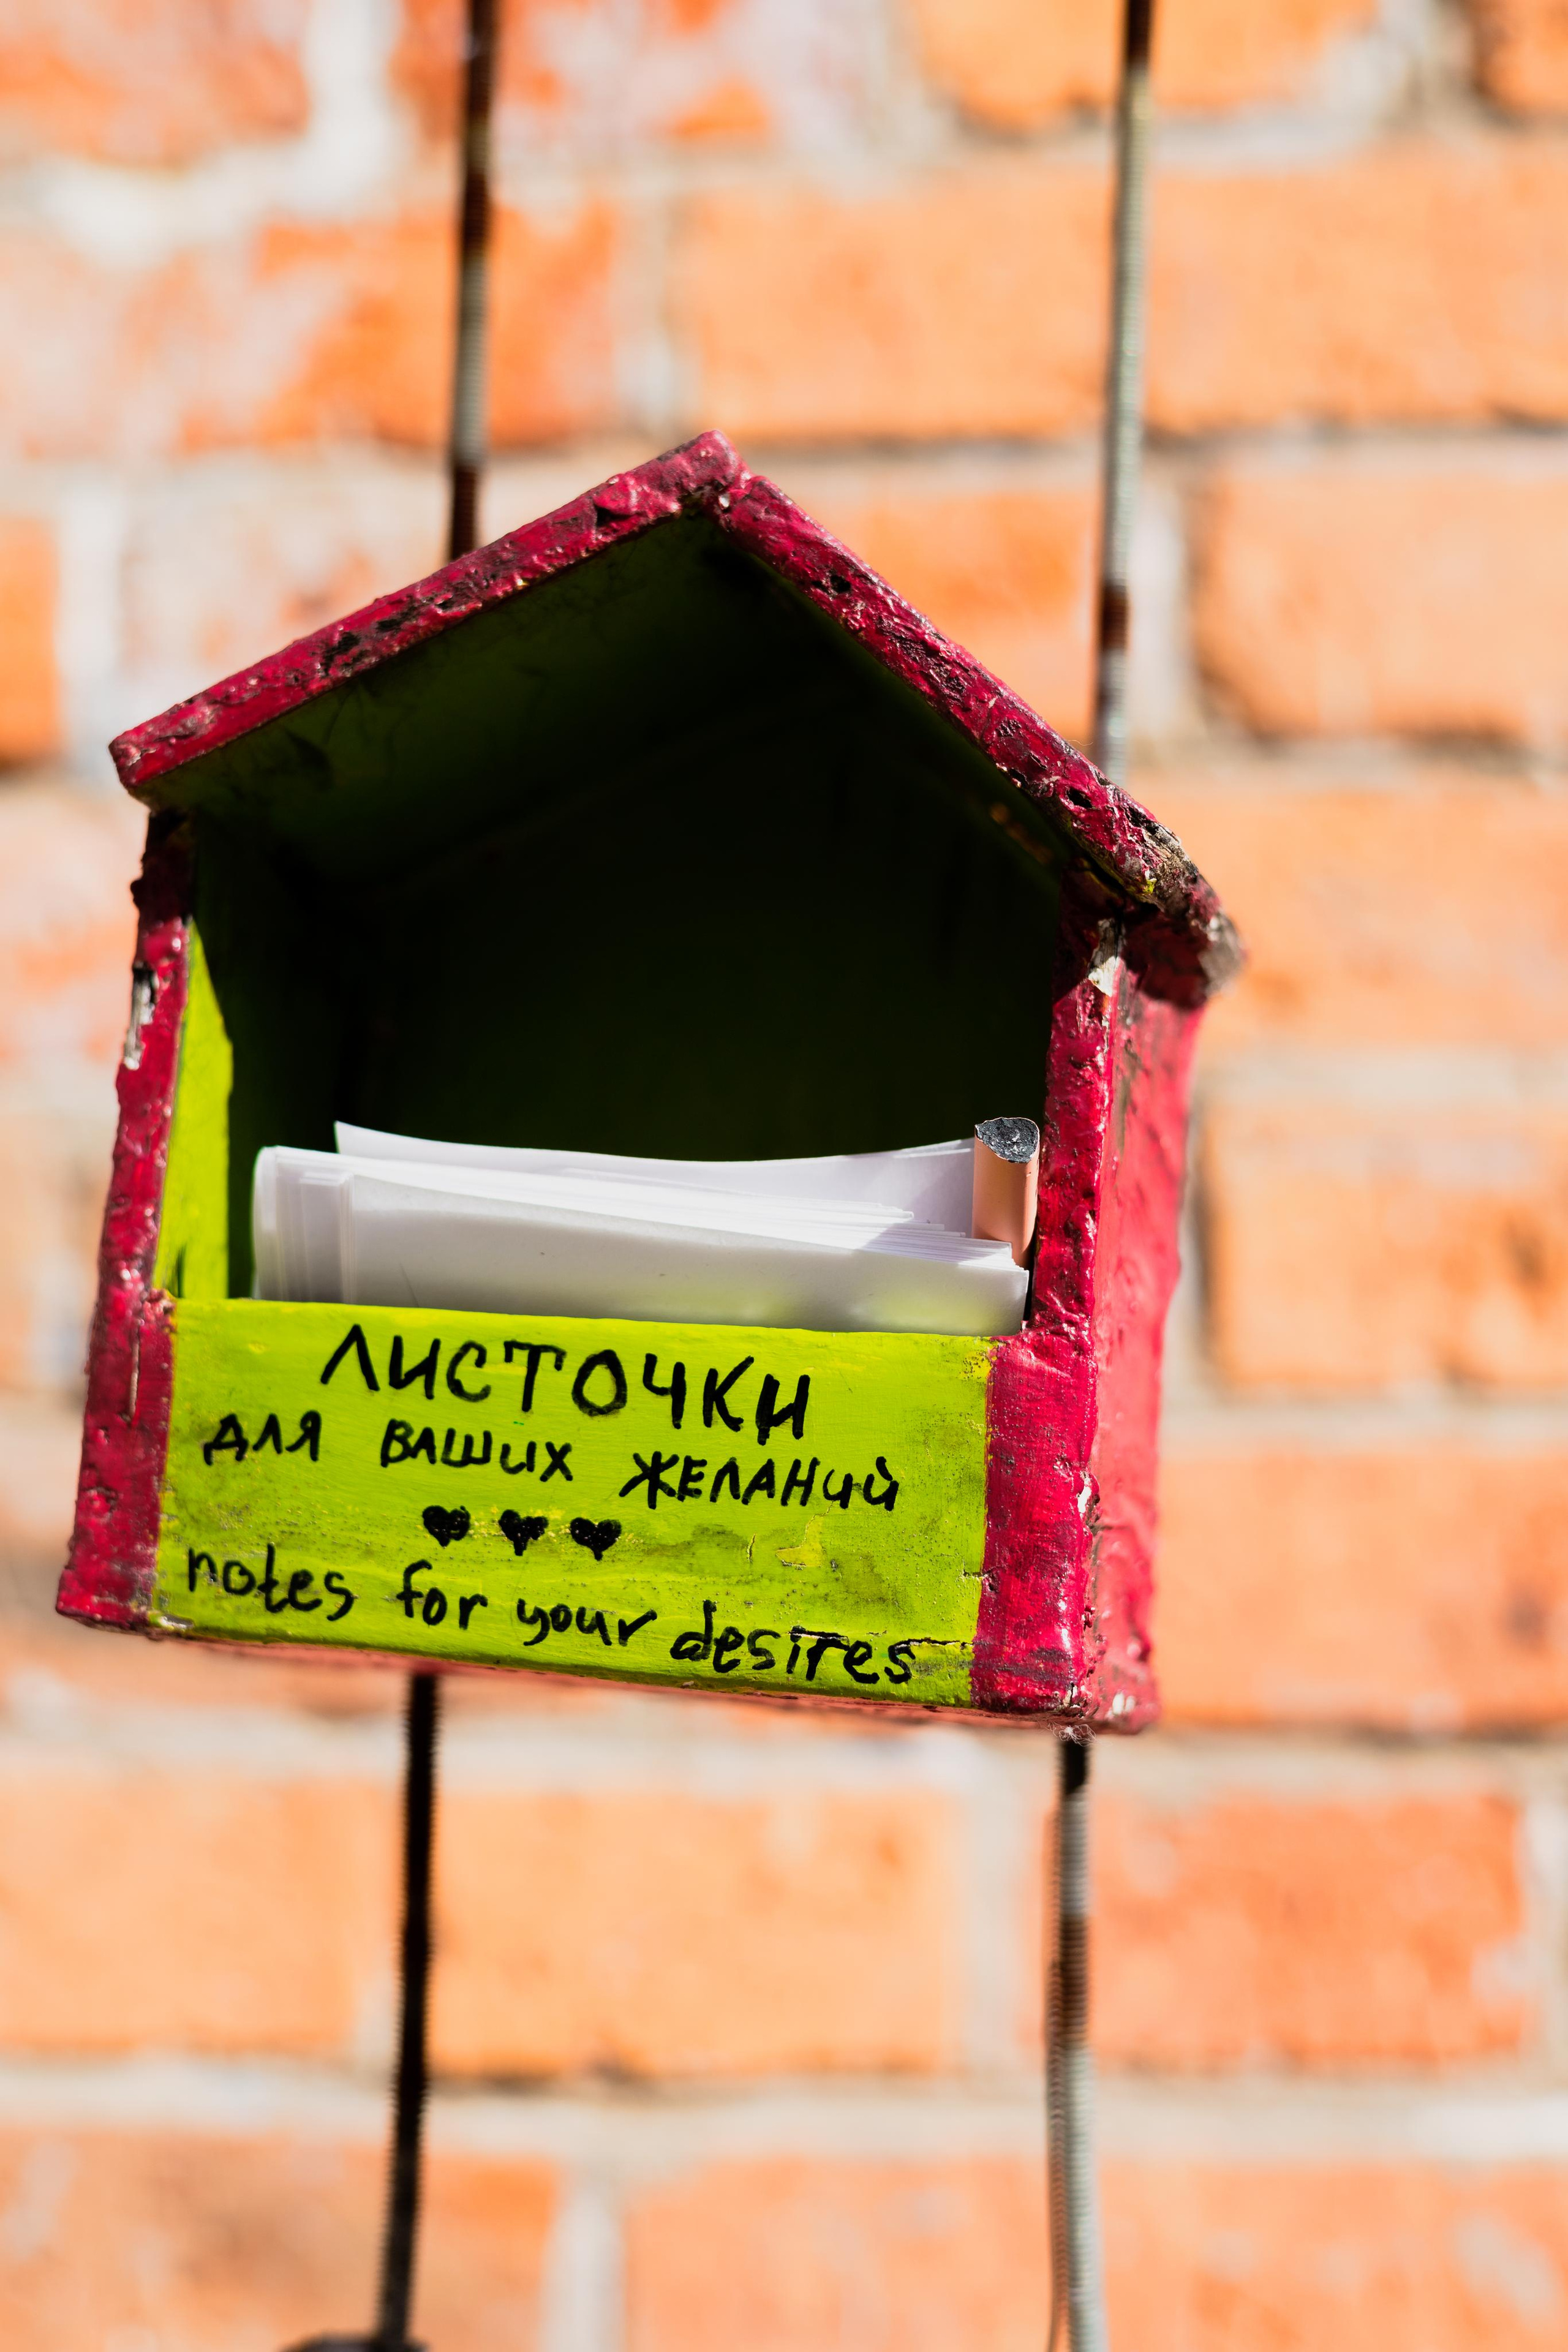 ЛИСТОЧКИ
ДЛЯ ВАШИХ ЖЕЛАНИЙ
♥ ♥ ♥
notes for your desires